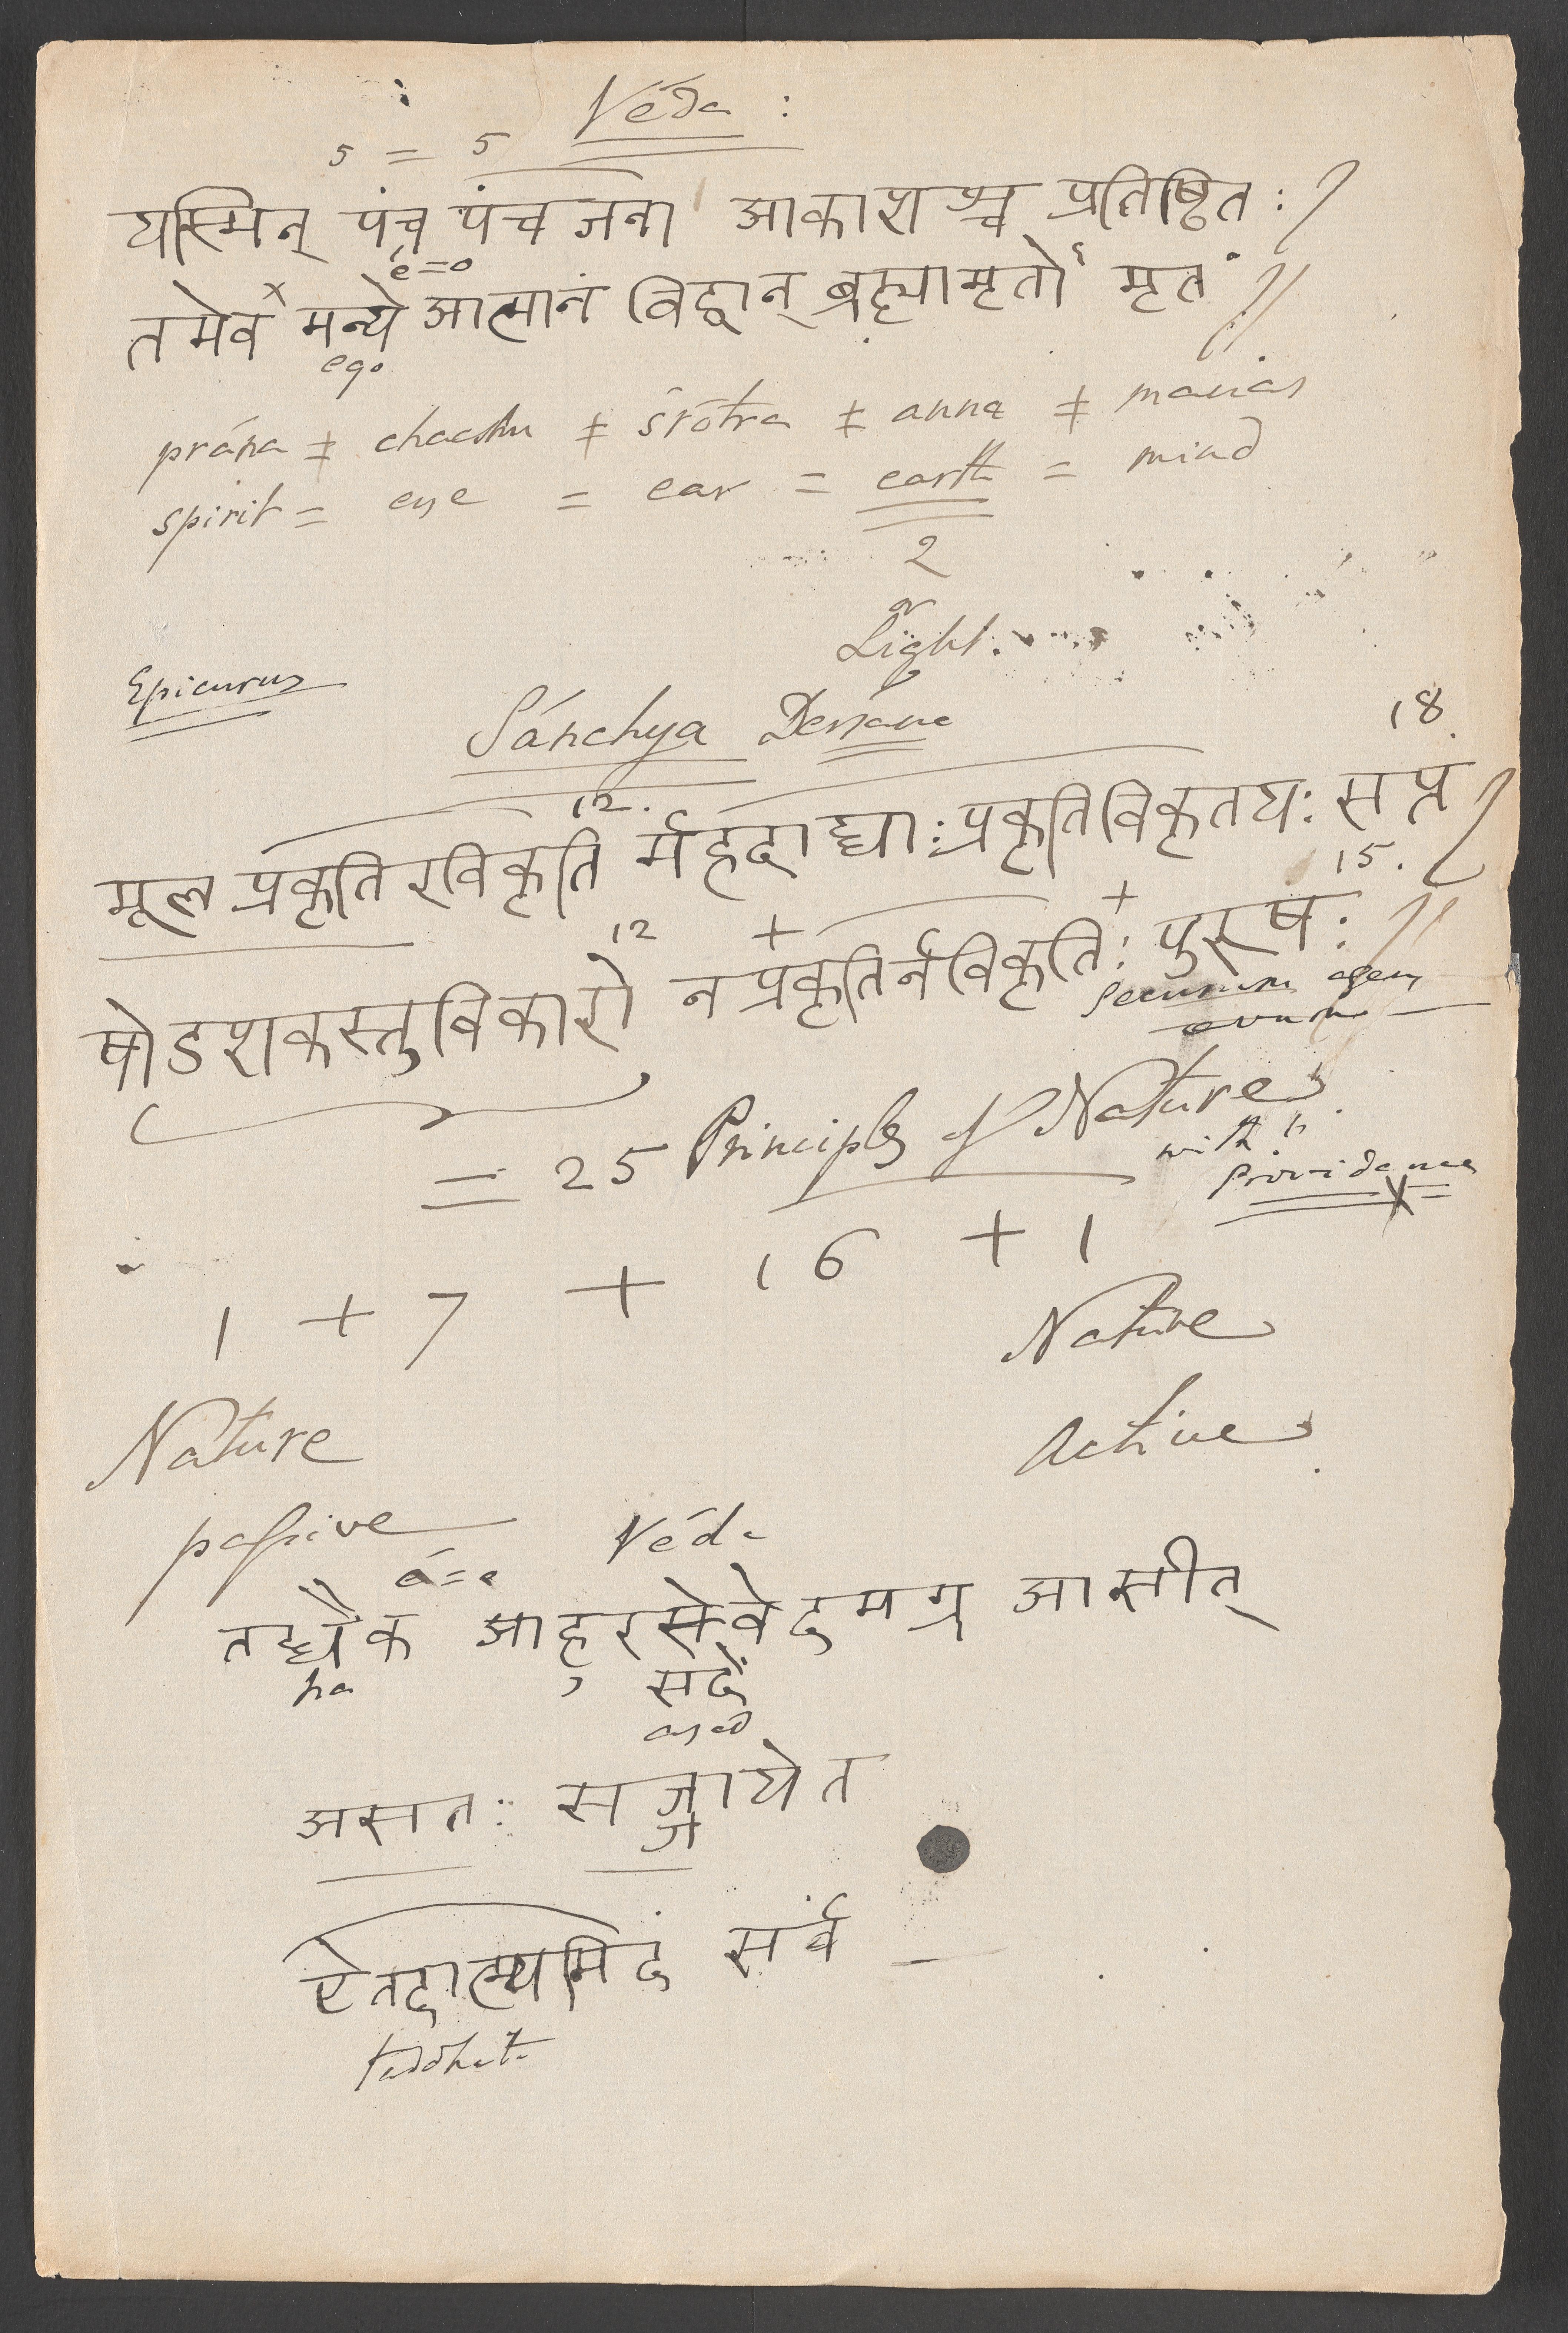 Véda :
5 = 5
यस्मिन् पंच पंच जना आकाशश्च प्रतिष्ठितः ।
é=o
तमेवं मन्ये आत्मानं विद्वान् ब्रह्मामृतो मृतं ॥
ego
prána ‡ chacshu ‡ śrōtra ‡ anna ‡ manas
spirit = eye = ear = earth = mind
2
or
Light.
Epicurus
Sánchya Dersana
18.
12.
मूल प्रकृतिरविकृति र्महदाद्याः प्रकृतिविकृतयः सप्त ।
15.
12 + +
षोडशकस्तुविकारो न प्रकृतिर्नविकृतिः पुरुषः ॥
Securum agens
= 25 Principles of Nature
with
Providence
1 + 7 + 16 + 1
Nature
Nature
active
passive
Véda
तद्धैक आहुरसेवेदमग्र आसीत्
ha सदे
asad
असतः सज्जायेत
ज
ऐतदात्म्यमिदं सर्वं
taddhita